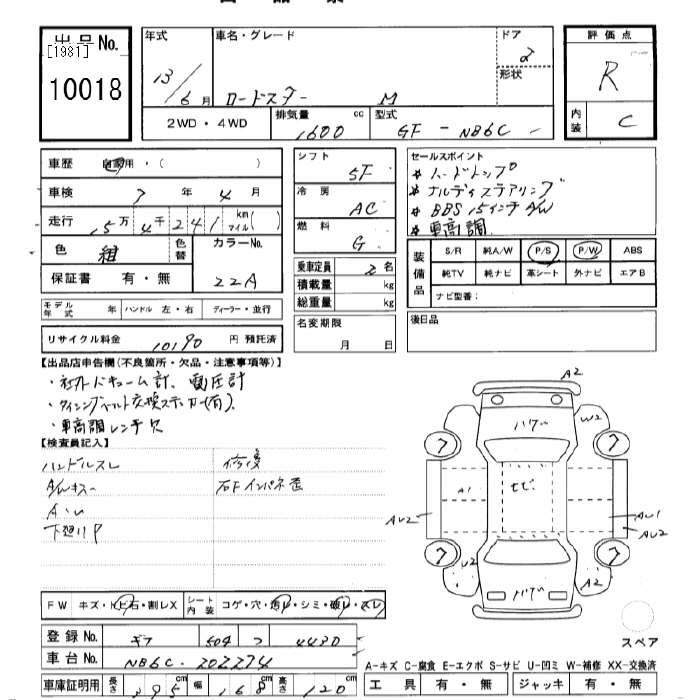 出品No.
[1981]
10018
年式
13/6月
車名・グレード
ロードスター M
ドア
2
形状
評価点
R
内装
C
2WD・4WD
排気量
1600 cc
型式
GF-NB6C
車歴 自家用・( )
車検 7年 4月
走行 15万4千241 km マイル( )
色 紺
色替
カラーNo.
22A
保証書 有・無
シフト
5F
冷房
AC
燃料
G
乗車定員 2名
積載量 kg
総重量 kg
セールスポイント
* ハードトップ
* ナルディステアリング
* BBS 15インチ A/W
* 車高調
装備品
S/R 純A/W P/S P/W ABS
純TV 純ナビ 革シート 外ナビ エアB
ナビ型番:
モデル年式 年 ハンドル 左・右 ディーラー・並行
リサイクル料金 10190 円 預託済
名変期限
月 日
後日品
【出品店申告欄(不良箇所・欠品・注意事項等)】
・社外バキューム計、電圧計
・タイミングベルト交換ステッカー(有)
・車高調レンチ欠
【検査員記入】
ハンドルスレ
A/Wキズ
下廻りP
修復
右Fインパネ歪
A2
ハゲ
W2
A1
モビ
AU2
AU1
AU2
U2
ハゲ
A2
スペア
FW キズ・トビ石・割レX
シート内装 コゲ・穴・汚レ・シミ・破レ・スレ
登録No. 504 フ 4430
車台No. NB6C-202274
車庫証明用 長さ 395cm 幅 168cm 高さ 120cm
A-キズ C-腐食 E-エクボ S-サビ U-凹ミ W-補修 XX-交換済
工具 有・無 ジャッキ 有・無